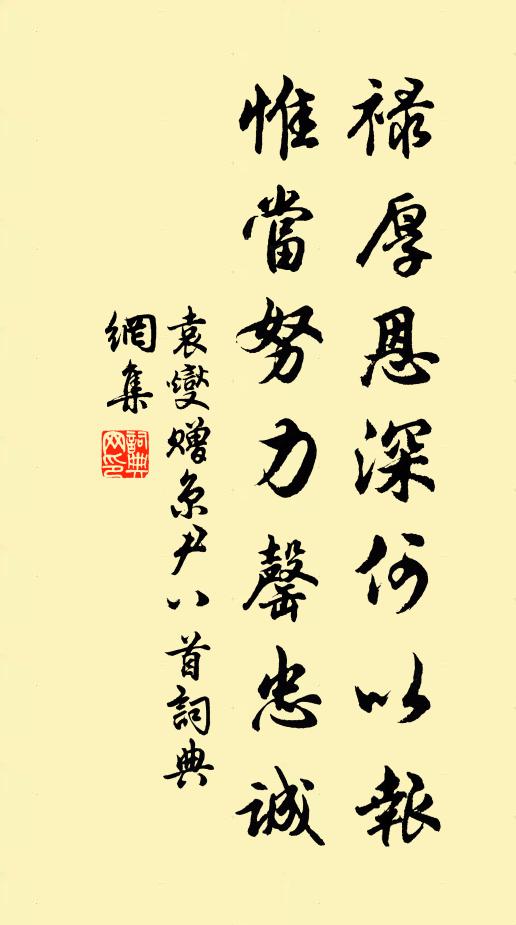 禄厚恩深何以報
惟當努力罄忠誠
袁燮贈京尹八首詞典
網集
詞典
网印